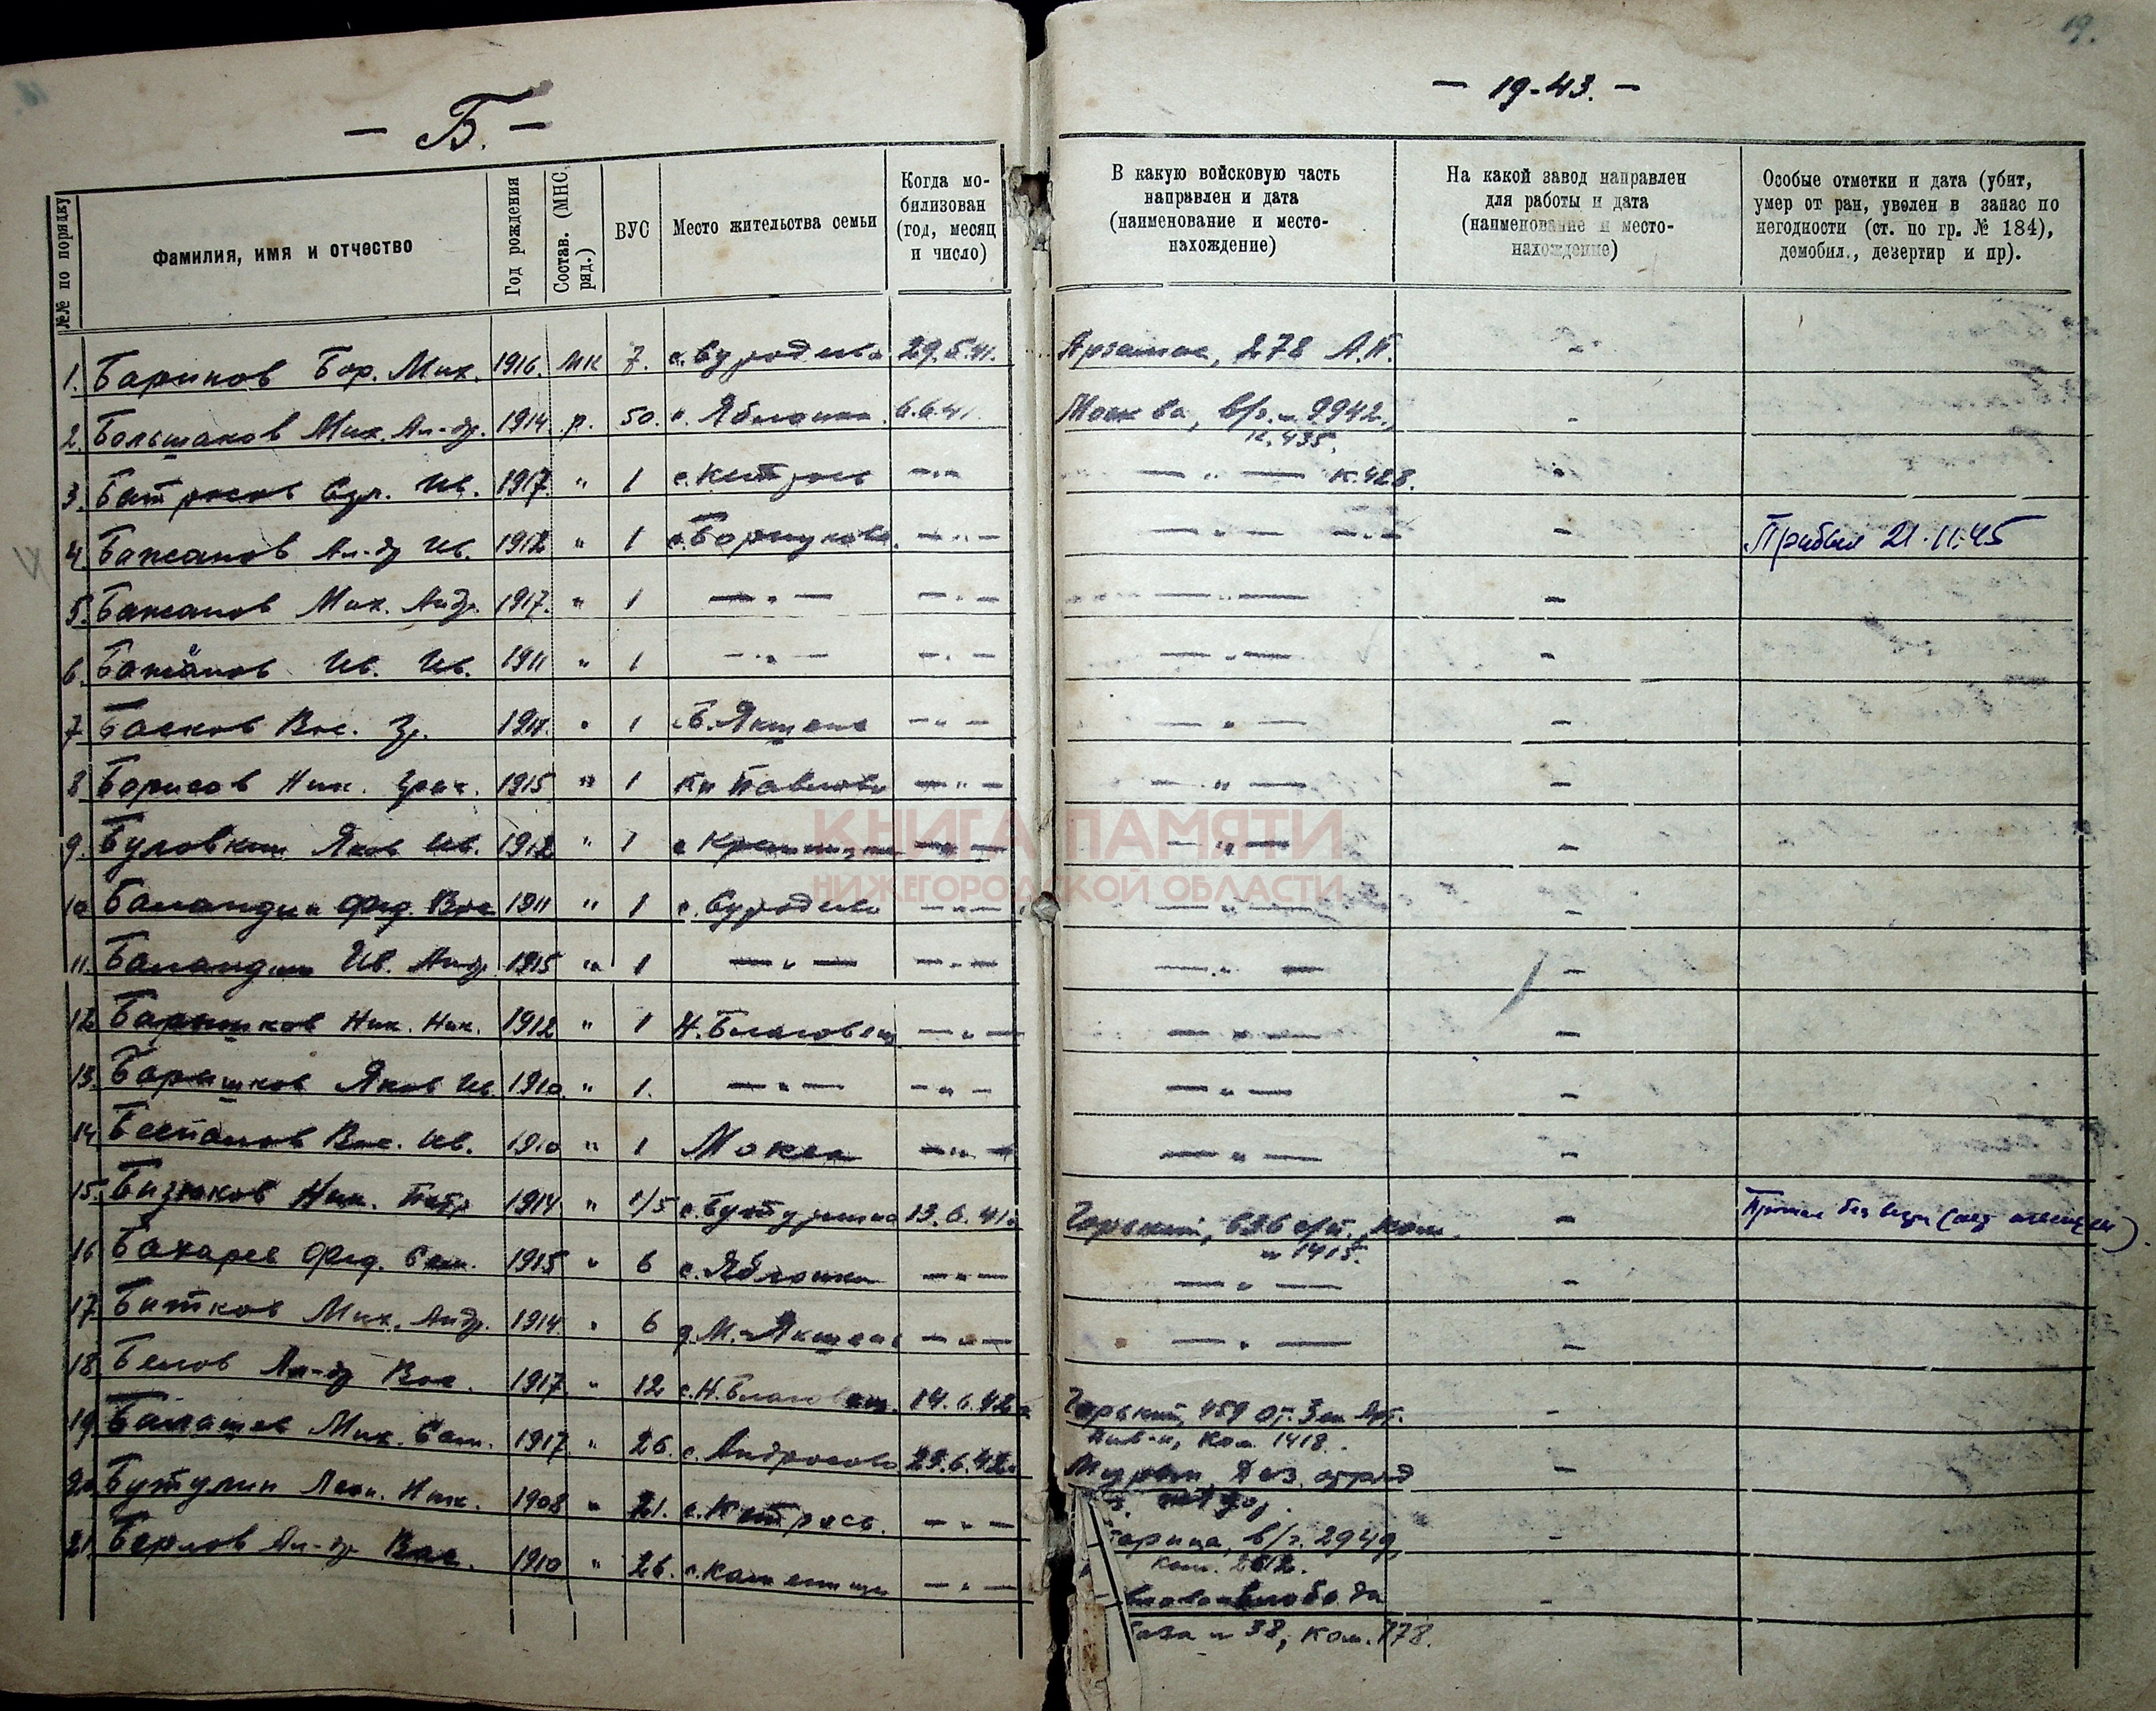 19.
— Б. —
— 19-43. —
№№ по порядку
Фамилия, имя и отчество
Год рождения
Состав. (МНС, ряд.)
ВУС
Место жительства семьи
Когда мобилизован (год, месяц и число)
В какую войсковую часть направлен и дата (наименование и местонахождение)
На какой завод направлен для работы и дата (наименование и местонахождение)
Особые отметки и дата (убит, умер от ран, уволен в запас по негодности (ст. по гр. № 184), демобил., дезертир и пр).
1. Баринов Бор. Мих. 1916. МК 7. с. Суродеево 29.5.41. Арзамас, 278 А.П. -
2. Большаков Мих. Ал-др. 1914 р. 50. с. Яблонка 6.6.41. Москва, в/ч. № 9942, -
к. 435.
3. Батросов Ив. 1917. " 1 с. Кетрось — " — — " — к. 428. -
4. Бажанов Ал-др Ив. 1912 " 1 с. Борнуково. — " — — " — — " — - Прибыл 21.11.45
5. Бажанов Мих. Андр. 1917. " 1 — " — — " — — " — -
6. Бажанов Ив. Ив. 1911 " 1 — " — — " — — " — -
7 Басков Вас. Гр. " 1 Б. Якшень — " — — " — -
8 Борисов Ник. 1915 " 1 Кн Павлово — " — — " — -
9. Буловкин Яков Ив. 1912 " 1 с — " — — " — -
10 Баландин Фед. Вас 1911 " 1 с. Суродеево — " — — " — -
11. Баландин Ив. Андр. 1915 " 1 — " — — " — — " — -
12 Барышков Ник. Ник. 1912 " 1 Н. Благовещ — " — — " — -
13. Барышков Яков Ив. 1910. " 1. — " — — " — — " — -
14 Беспалов Вас. Ив. 1910 " 1 Мокса — " — — " — -
15. Бизюков Ник. Петр 1914 " 1/5 с. Бутурлино 13.6.41. Горький, с/п. ком. - Пропал без вести
№ 1415.
16 Бахарев Фед. Сем. 1915 " 6 с. Яблонка — " — — " — -
17. Битков Мих. Андр. 1914. " 6 д. М. Якшень — " — — " — -
18. Белов Ал-др Вас. 1917 " 12 с. Н. Благовещ. 14.6.42 Горький, 459 от. Зен. Арт. -
Див-н, ком 1418.
19. Балашов Мих. Сем. 1917. " 26. с. Андросово 23.6.42 Муром, отряд -
20. Бутулин Леон. Ник. 1908 " 21. с. Кетрось. — " — в/ч. 2949, -
ком. 2612.
21. Берлов Ал-др Вас. 1910 " 26. с. Каменищи — " — слобода -
база № 38, ком. 178.
КНИГА ПАМЯТИ
НИЖЕГОРОДСКОЙ ОБЛАСТИ